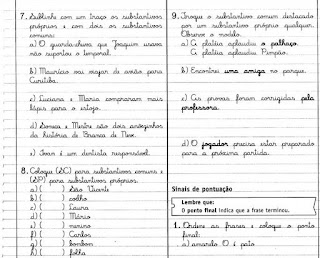 7. Sublinhe com um traço os substantivos
próprios e com dois os substantivos
comuns:
a) O guarda-chuva que Joaquim usava
não suportou o temporal.
b) Maurício vai viajar de avião para
Curitiba.
c) Luciana e Maria compraram mais
lápis para o estojo.
d) Soneca e Mestre são dois anõezinhos
da história de Branca de Neve.
e) Ivan é um dentista responsável.
8. Coloque (SC) para substantivos comuns e
(SP) para substantivos próprios.
a) ( ) São Vicente
b) ( ) coelho
c) ( ) Laura
d) ( ) Mário
e) ( ) menino
f) ( ) Carlos
g) ( ) bombom
h) ( ) folha
9. Troque o substantivo comum destacado
por um substantivo próprio qualquer.
Observe o modelo.
a) A platéia aplaudiu o palhaço.
A platéia aplaudiu Pimpão.
b) Encontrei uma amiga no parque.
c) As provas foram corrigidas pela
professora.
d) O jogador precisa estar preparado
para a próxima partida.
Sinais de pontuação
Lembre que:
O ponto final indica que a frase terminou.
1. Ordene as frases e coloque o ponto
final:
a) amarelo O é pato